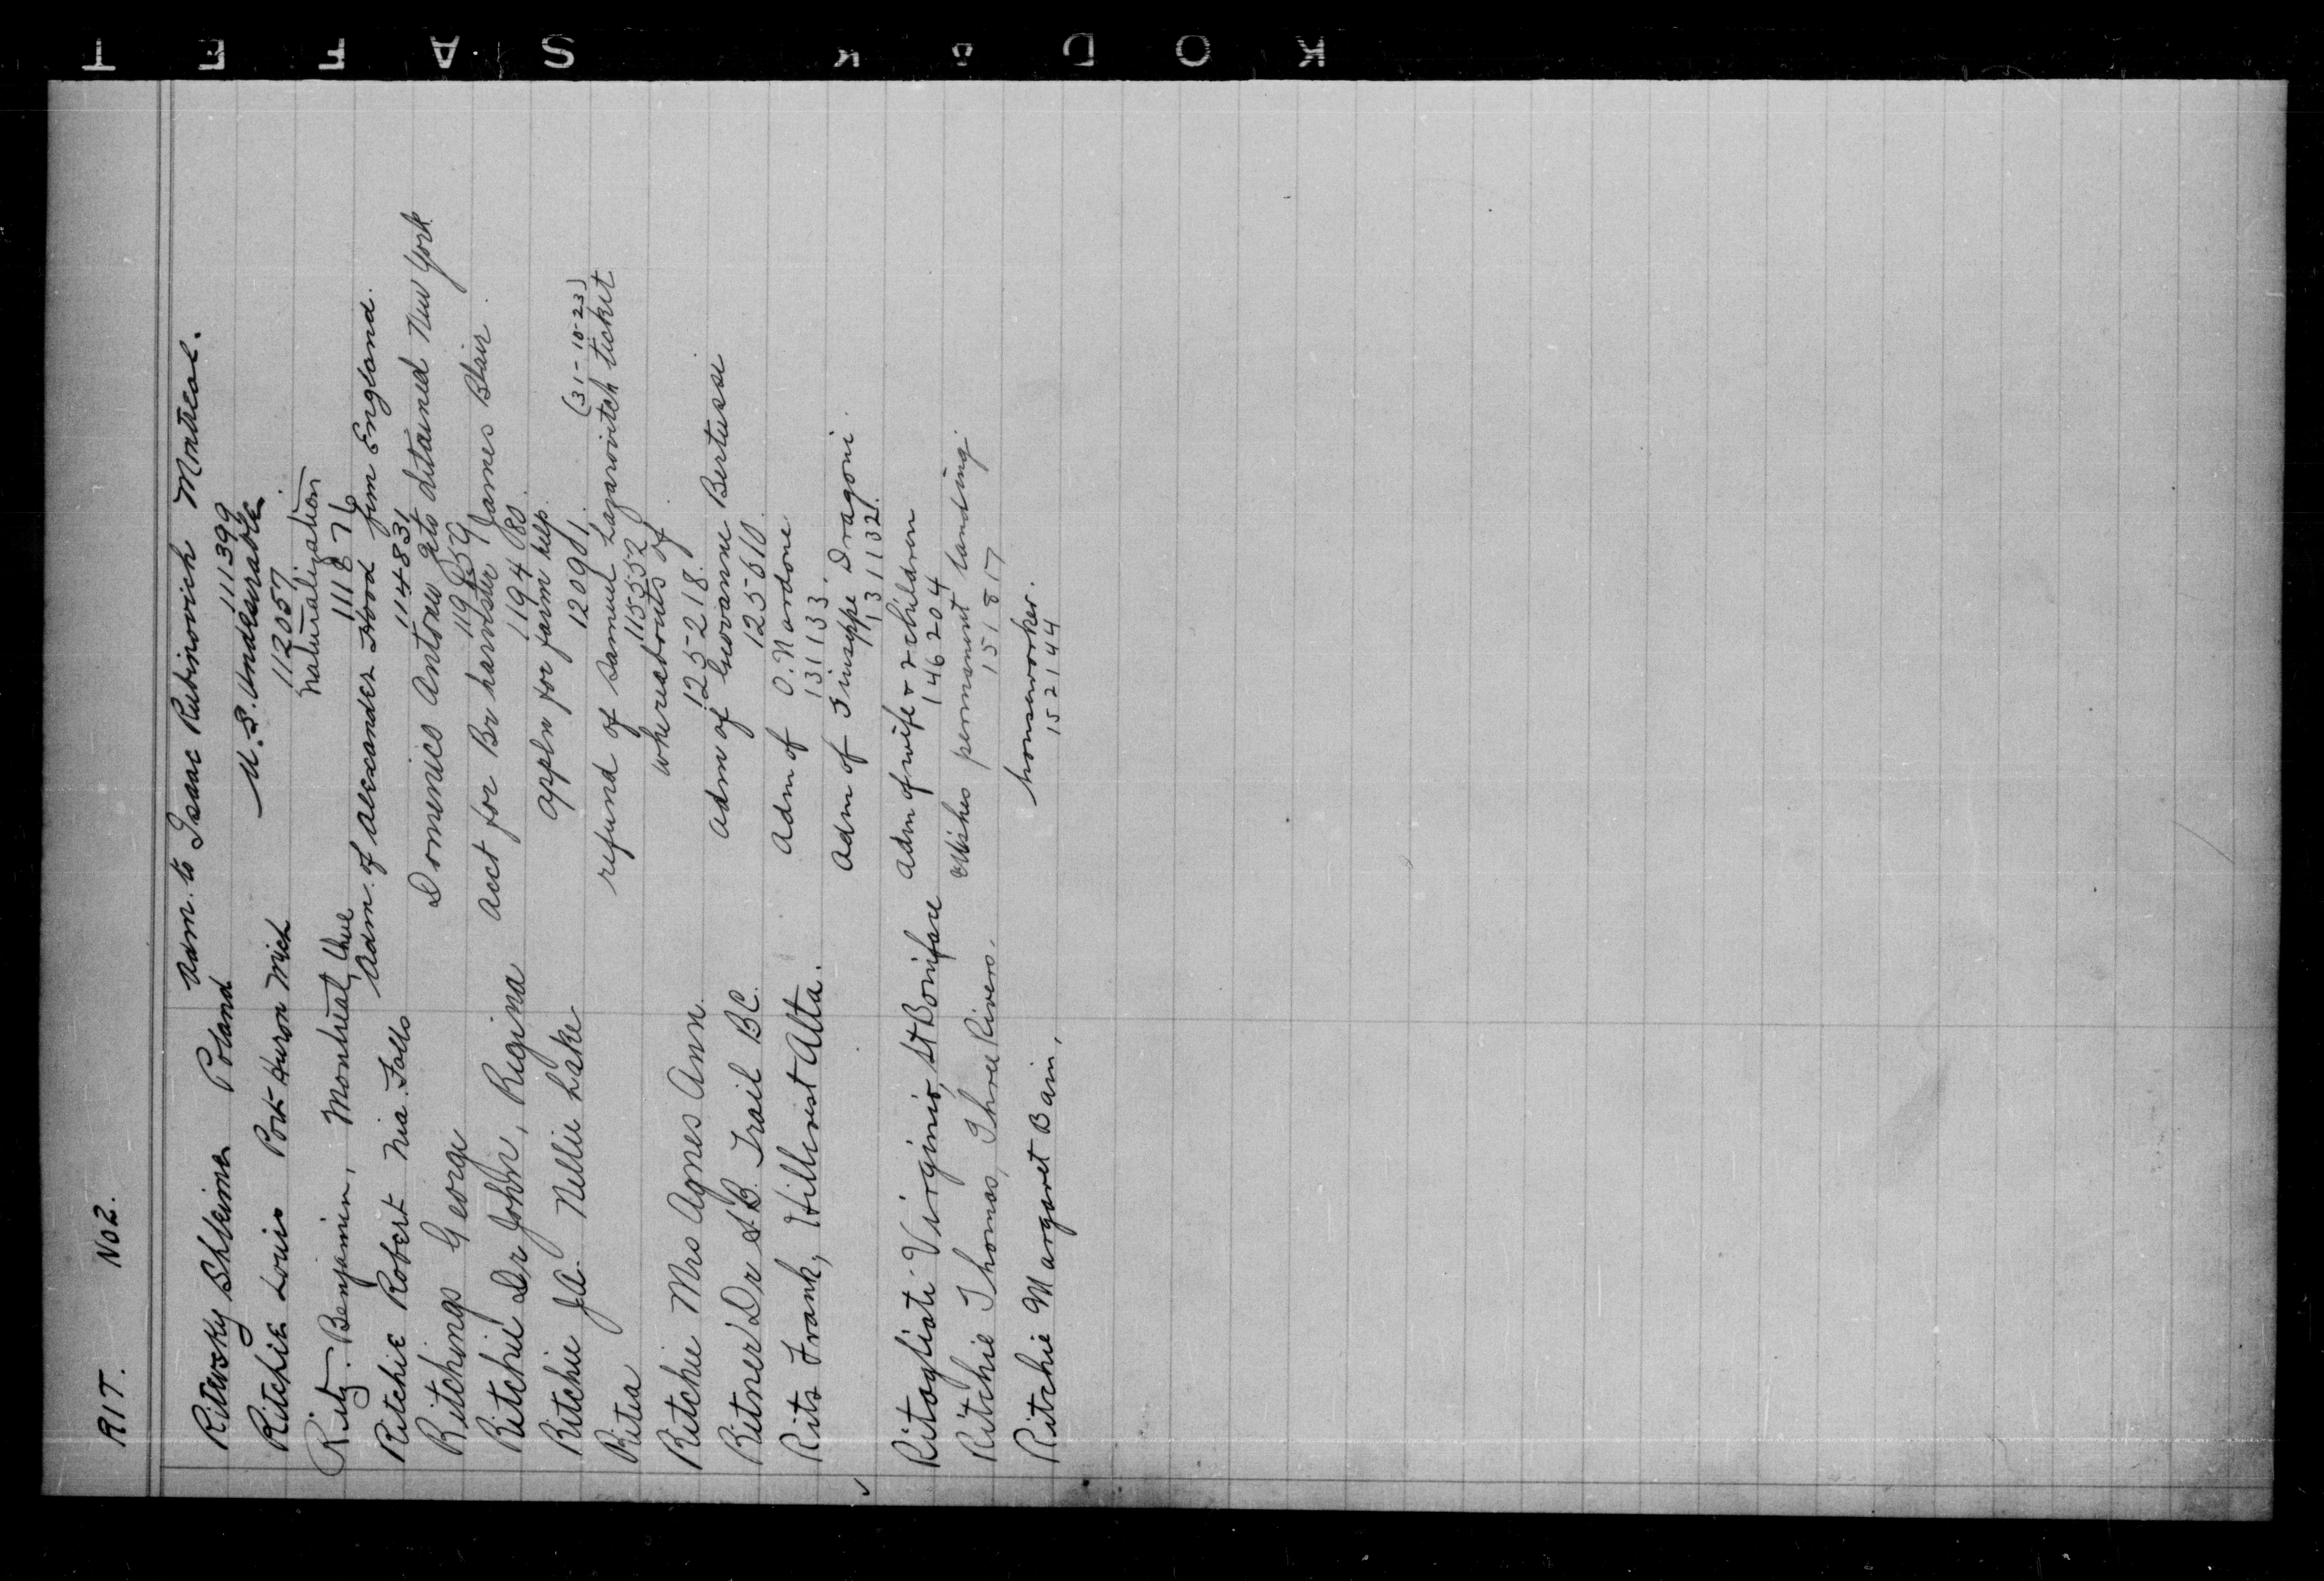 RIT. No 2.
Ritevsky Shleima Poland Adm. to Isaac Rubinovich Montreal.
111399
Ritchie Louis Port Huron Mich U.S. Undesirable
112057
Ritz. Benjamin, Montreal, Que naturalization
111876
Ritchie Robert Nia Falls Adm. of Alexander Hood fum England.
114831
Ritchings George Domenico Antonio detained New York
Ritchie Dr John, Regina Acct for Br harvester James Blair.
119480
Ritchie J.A. Nellie Lake appln for farm help
120901 (31-10-23)
Ritea refund of Samuel Lazarovitch ticket
115552
Ritchie Mrs Agnes Ann whereabouts of
125218.
Ritner Dr S.B. Trail BC. Adm of Giovanne Bertussi
125610.
Rits Frank, Hillcrest Alta. Adm of O. Nardone
131133.
Adm of Giuseppe Dragoni.
131132.
Ritogliati Virginio, St Boniface Adm of wife & 2 children
146204
Ritchie Thomas, Three Rivers. Wishes permanent landing
151817
Ritchie Margaret Bain, houseworker.
152144
KODAK SAFET